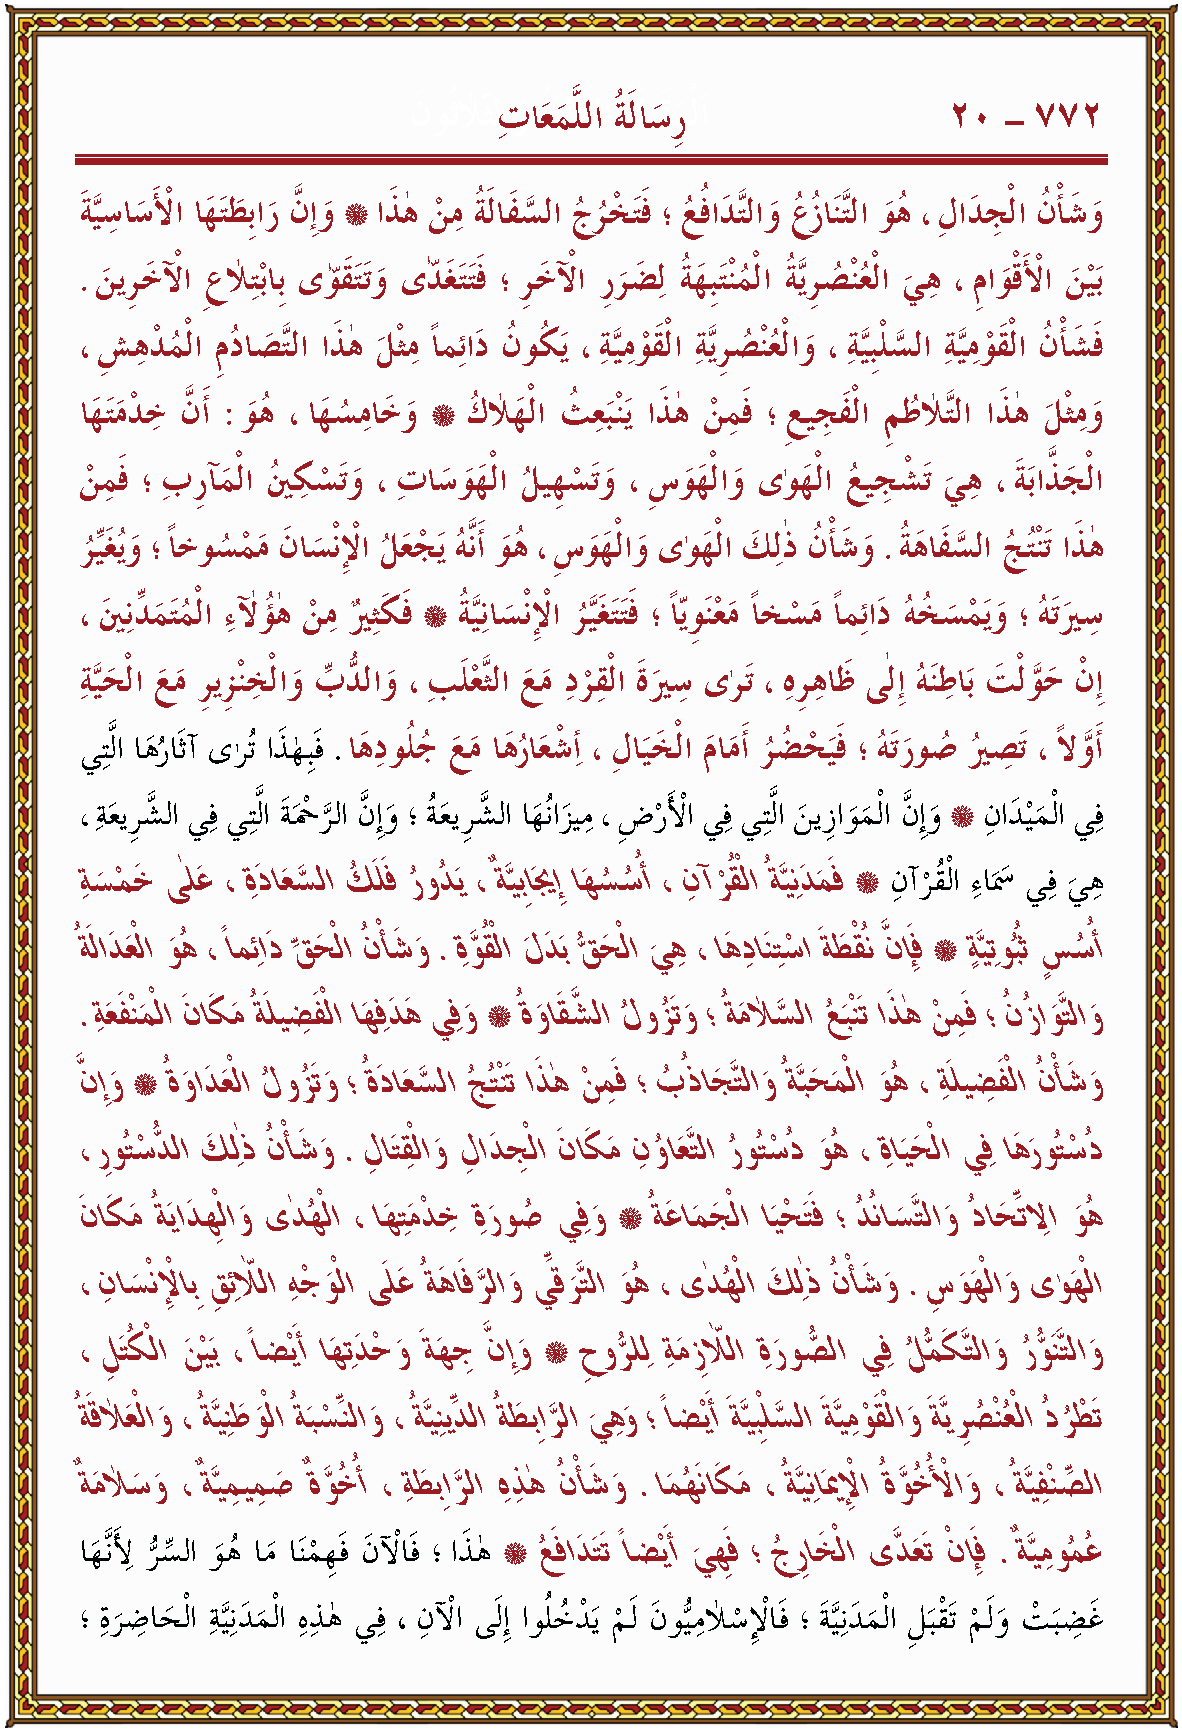 ٧٧٢ ـ ٢٠ رِسَالَةُ اللَّمَعَاتِ
وَشَأْنُ الْجِدَالِ ، هُوَ التَّنَازُعُ وَالتَّدَافُعُ ؛ فَتَخْرُجُ السَّفَالَةُ مِنْ هٰذَا ۞ وَإِنَّ رَابِطَتَهَا الْأَسَاسِيَّةَ
بَيْنَ الْأَقْوَامِ ، هِيَ الْعُنْصُرِيَّةُ الْمُنْتَبِهَةُ لِضَرَرِ الْآخَرِ ؛ فَتَتَغَدّٰى وَتَتَقَوّٰى بِابْتِلَاعِ الْآخَرِينَ .
فَشَأْنُ الْقَوْمِيَّةِ السَّلْبِيَّةِ ، وَالْعُنْصُرِيَّةِ الْقَوْمِيَّةِ ، يَكُونُ دَائِماً مِثْلَ هٰذَا التَّصَادُمِ الْمُدْهِشِ ،
وَمِثْلَ هٰذَا التَّلَاطُمِ الْفَجِيعِ ؛ فَمِنْ هٰذَا يَنْبَعِثُ الْهَلَاكُ ۞ وَخَامِسُهَا ، هُوَ : أَنَّ خِدْمَتَهَا
الْجَذَّابَةَ ، هِيَ تَشْجِيعُ الْهَوٰى وَالْهَوَسِ ، وَتَسْهِيلُ الْهَوَسَاتِ ، وَتَسْكِينُ الْمَآرِبِ ؛ فَمِنْ
هٰذَا تُنْتَجُ السَّفَاهَةُ . وَشَأْنُ ذٰلِكَ الْهَوٰى وَالْهَوَسِ ، هُوَ أَنَّهُ يَجْعَلُ الْإِنْسَانَ مَمْسُوخاً ؛ وَيُغَيِّرُ
سِيرَتَهُ ؛ وَيَمْسَخُهُ دَائِماً مَسْخاً مَعْنَوِيّاً ؛ فَتَتَغَيَّرُ الْإِنْسَانِيَّةُ ۞ فَكَثِيرٌ مِنْ هٰؤُلَاءِ الْمُتَمَدِّنِينَ ،
إِنْ حَوَّلْتَ بَاطِنَهُ إِلٰى ظَاهِرِهِ ، تَرٰى سِيرَةَ الْقِرْدِ مَعَ الثَّعْلَبِ ، وَالدُّبِّ وَالْخِنْزِيرِ مَعَ الْحَيَّةِ
أَوَّلاً ، تَصِيرُ صُورَتَهُ ؛ فَيَحْضُرُ أَمَامَ الْخَيَالِ ، أَشْعَارُهَا مَعَ جُلُودِهَا . فَبِهٰذَا تُرٰى آثَارُهَا الَّتِي
فِي الْمَيْدَانِ ۞ وَإِنَّ الْمَوَازِينَ الَّتِي فِي الْأَرْضِ ، مِيزَانُهَا الشَّرِيعَةُ ؛ وَإِنَّ الرَّحْمَةَ الَّتِي فِي الشَّرِيعَةِ ،
هِيَ فِي سَمَاءِ الْقُرْآنِ ۞ فَمَدَنِيَّةُ الْقُرْآنِ ، أُسُسُهَا إِيجَابِيَّةٌ ، يَدُورُ فَلَكُ السَّعَادَةِ ، عَلٰى خَمْسَةِ
أُسُسٍ ثُبُوتِيَّةٍ ۞ فَإِنَّ نُقْطَةَ اسْتِنَادِهَا ، هِيَ الْحَقُّ بَدَلَ الْقُوَّةِ . وَشَأْنُ الْحَقِّ دَائِماً ، هُوَ الْعَدَالَةُ
وَالتَّوَازُنُ ؛ فَمِنْ هٰذَا تَنْبَعُ السَّلَامَةُ ؛ وَتَزُولُ الشَّقَاوَةُ ۞ وَفِي هَدَفِهَا الْفَضِيلَةُ مَكَانَ الْمَنْفَعَةِ .
وَشَأْنُ الْفَضِيلَةِ ، هُوَ الْمَحَبَّةُ وَالتَّجَاذُبُ ؛ فَمِنْ هٰذَا تُنْتَجُ السَّعَادَةُ ؛ وَتَزُولُ الْعَدَاوَةُ ۞ وَإِنَّ
دُسْتُورَهَا فِي الْحَيَاةِ ، هُوَ دُسْتُورُ التَّعَاوُنِ مَكَانَ الْجِدَالِ وَالْقِتَالِ . وَشَأْنُ ذٰلِكَ الدُّسْتُورِ ،
هُوَ الِاتِّحَادُ وَالتَّسَانُدُ ؛ فَتَحْيَا الْجَمَاعَةُ ۞ وَفِي صُورَةِ خِدْمَتِهَا ، الْهُدٰى وَالْهِدَايَةُ مَكَانَ
الْهَوٰى وَالْهَوَسِ . وَشَأْنُ ذٰلِكَ الْهُدٰى ، هُوَ التَّرَقِّي وَالرَّفَاهَةُ عَلَى الْوَجْهِ اللَّائِقِ بِالْإِنْسَانِ ،
وَالتَّنَوُّرُ وَالتَّكَمُّلُ فِي الصُّورَةِ اللَّازِمَةِ لِلرُّوحِ ۞ وَإِنَّ جِهَةَ وَحْدَتِهَا أَيْضاً ، بَيْنَ الْكُتَلِ ،
تَطْرُدُ الْعُنْصُرِيَّةَ وَالْقَوْمِيَّةَ السَّلْبِيَّةَ أَيْضاً ؛ وَهِيَ الرَّابِطَةُ الدِّينِيَّةُ ، وَالنِّسْبَةُ الْوَطَنِيَّةُ ، وَالْعَلَاقَةُ
الصِّنْفِيَّةُ ، وَالْأُخُوَّةُ الْإِيمَانِيَّةُ ، مَكَانَهُمَا . وَشَأْنُ هٰذِهِ الرَّابِطَةِ ، أُخُوَّةٌ صَمِيمِيَّةٌ ، وَسَلَامَةٌ
عُمُومِيَّةٌ . فَإِنْ تَعَدَّى الْخَارِجُ ؛ فَهِيَ أَيْضاً تَتَدَافَعُ ۞ هٰذَا ؛ فَالْآنَ فَهِمْنَا مَا هُوَ السِّرُّ لِأَنَّهَا
غَضِبَتْ وَلَمْ تَقْبَلِ الْمَدَنِيَّةَ ؛ فَالْإِسْلَامِيُّونَ لَمْ يَدْخُلُوا إِلَى الْآنِ ، فِي هٰذِهِ الْمَدَنِيَّةِ الْحَاضِرَةِ ؛